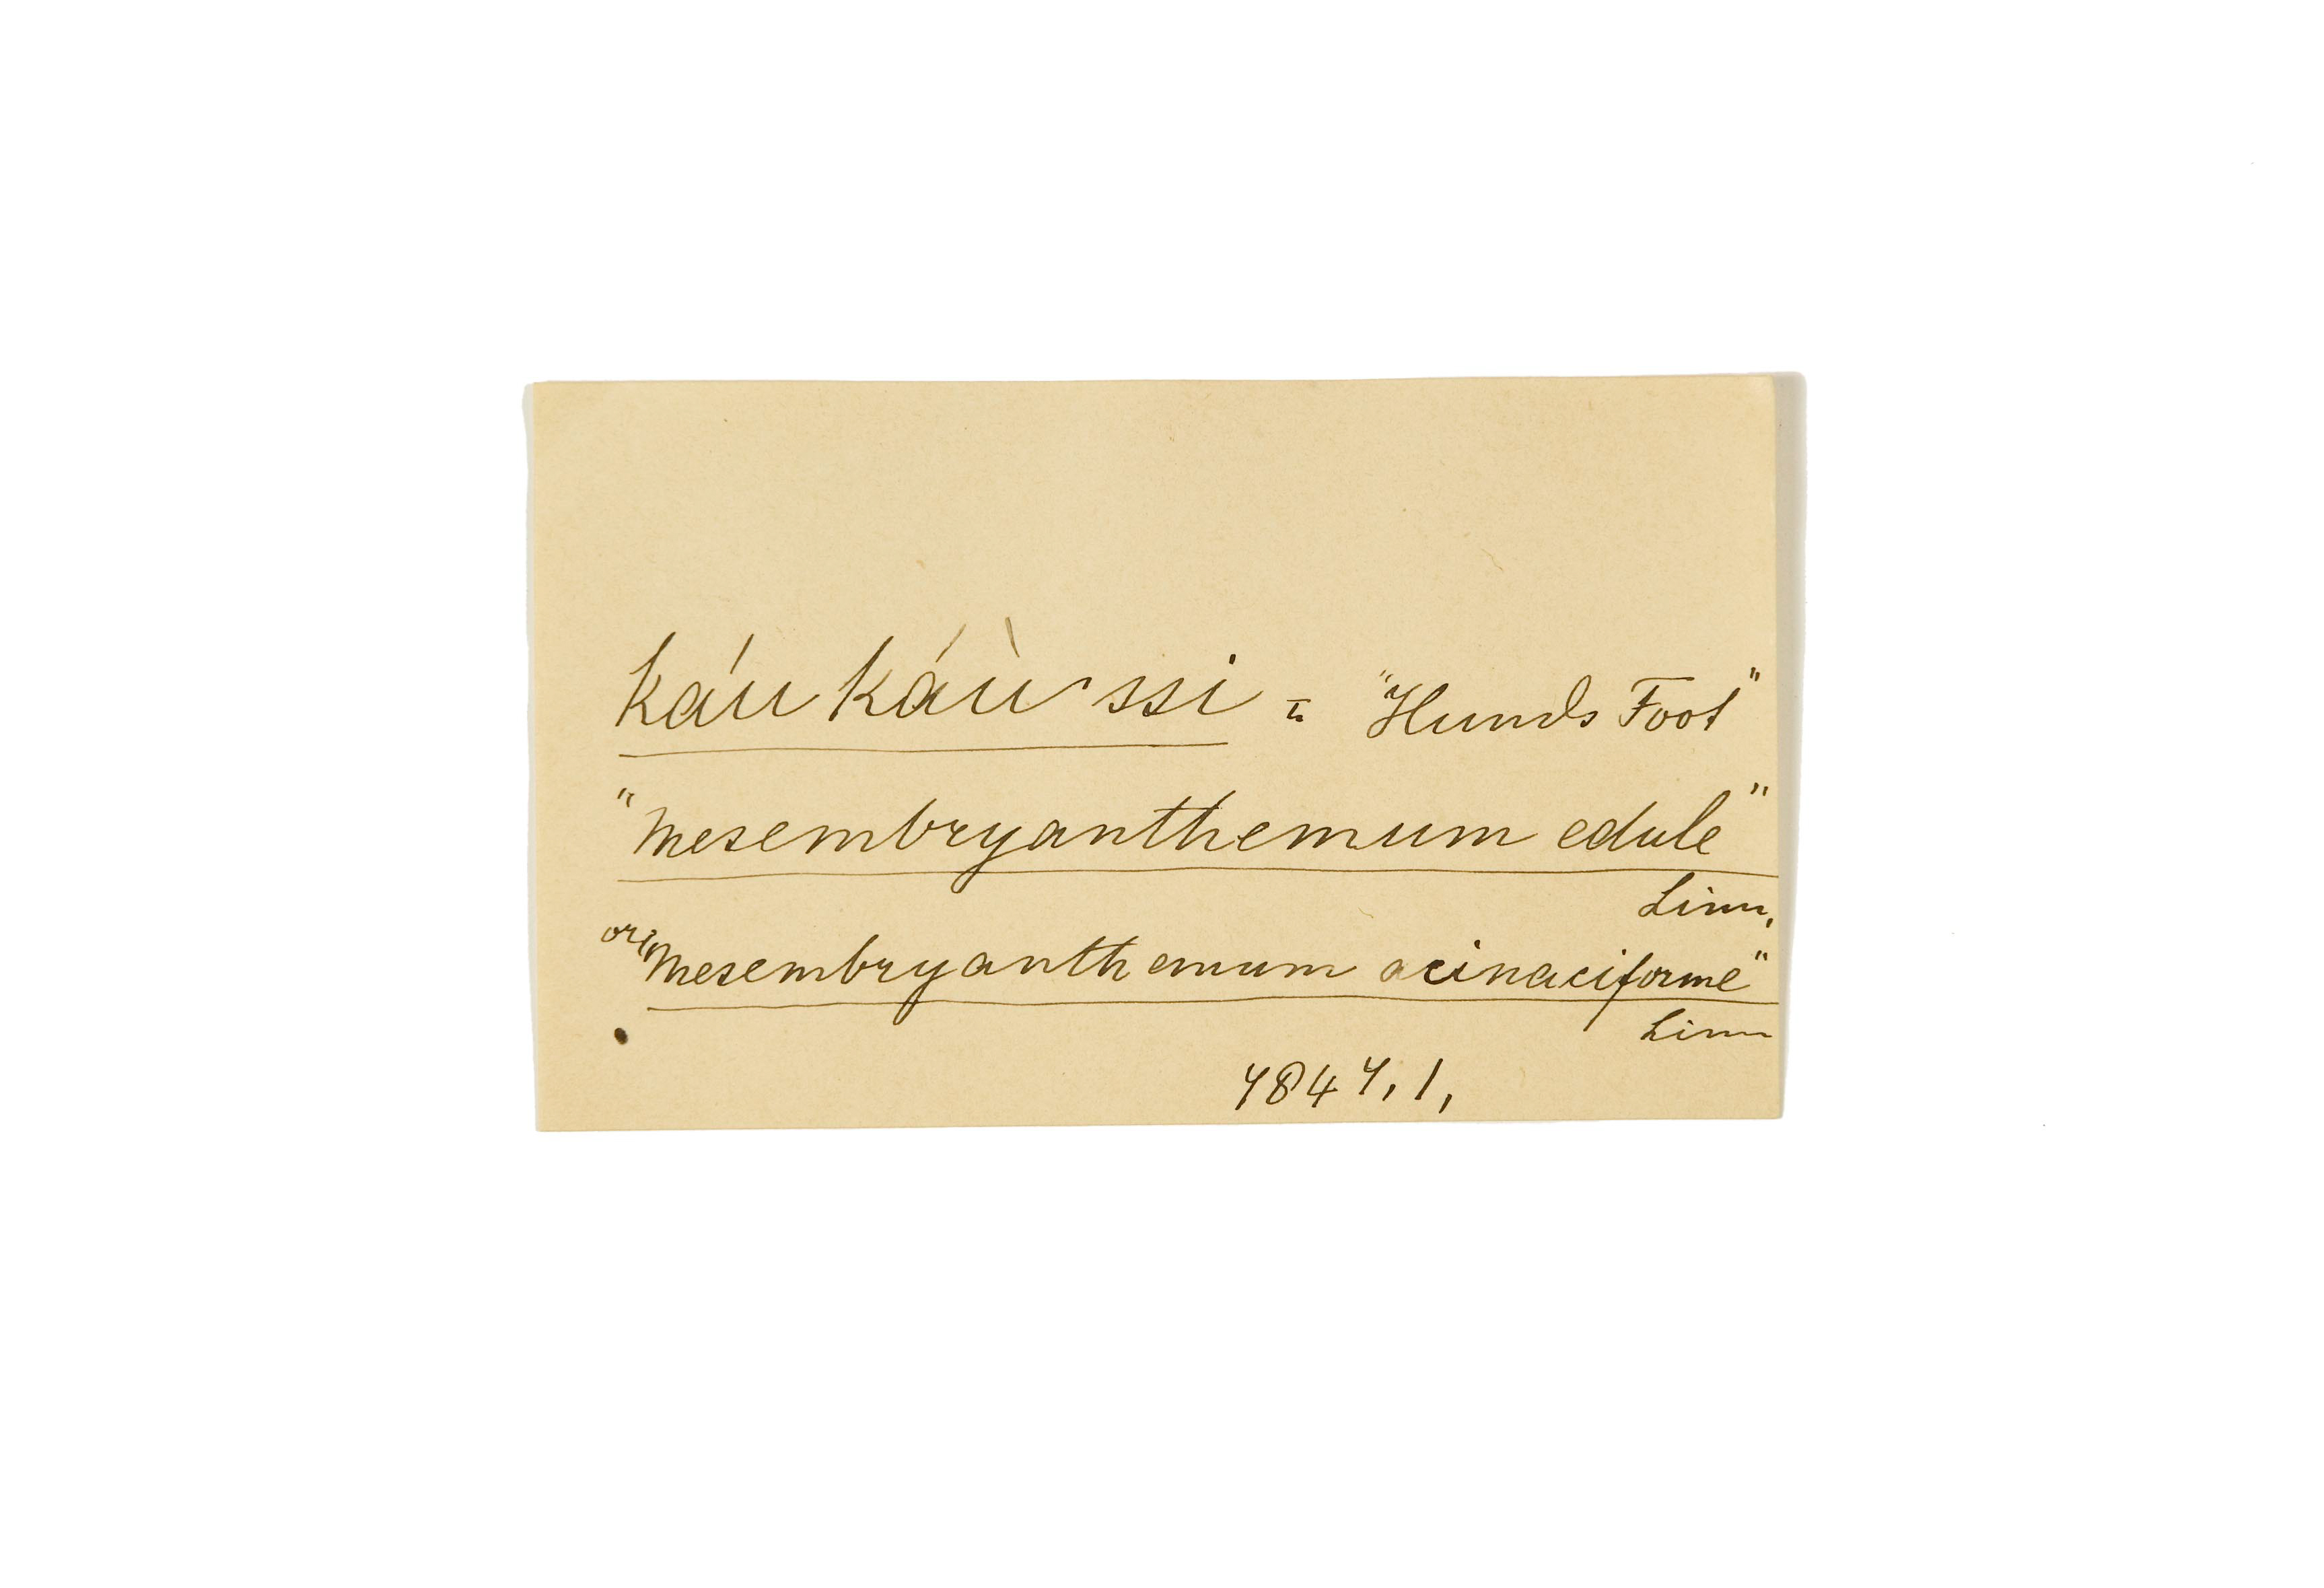 káu káù ssi = "Hunds Foot"
"Mesembryanthemum edule"
Linn,
or "Mesembryanthemum acinaciforme"
Linn
7847, 1,